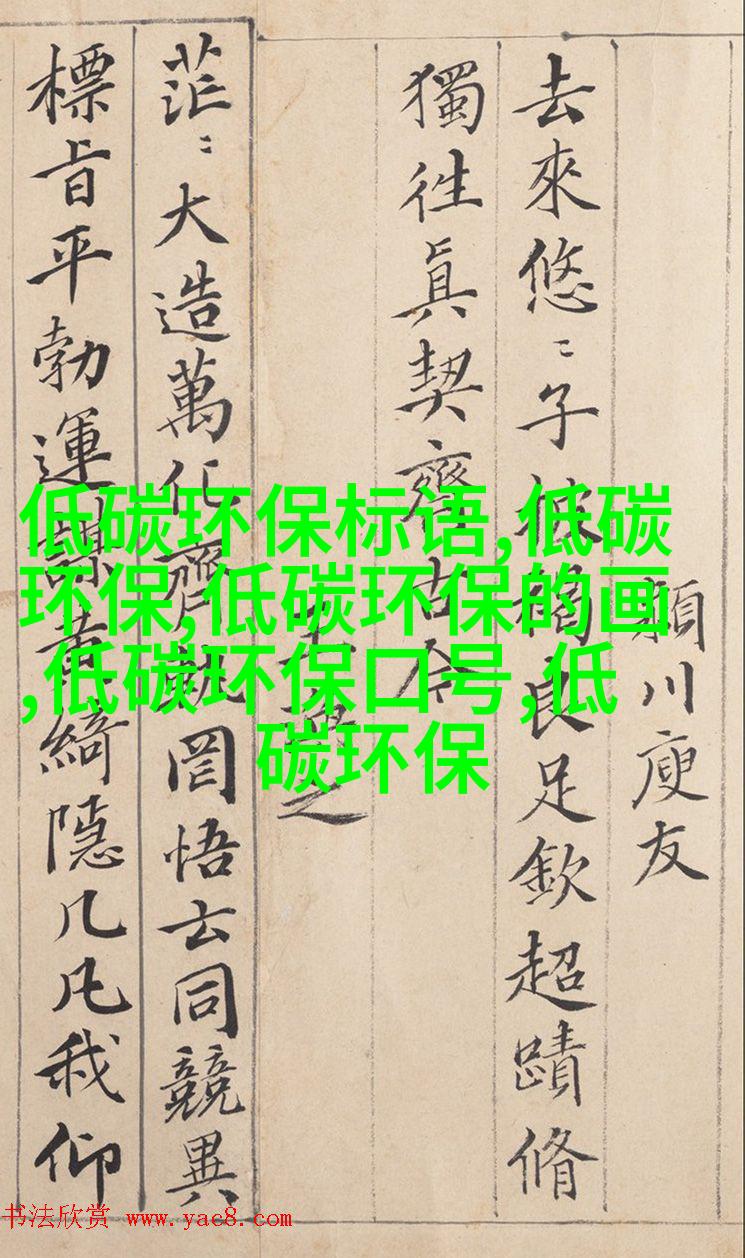 川庾友
去來悠〻子披褐良足欽超蹟脩
獨往眞契齊古今
之
茫〻大造萬化齊軌罔悟玄同競異
標旨平勃運謀黃綺隱几凡我仰
低碳环保标语,低碳
环保,低碳环保的画
,低碳环保口号,低
碳环保
书法欣赏 www.yac8.com